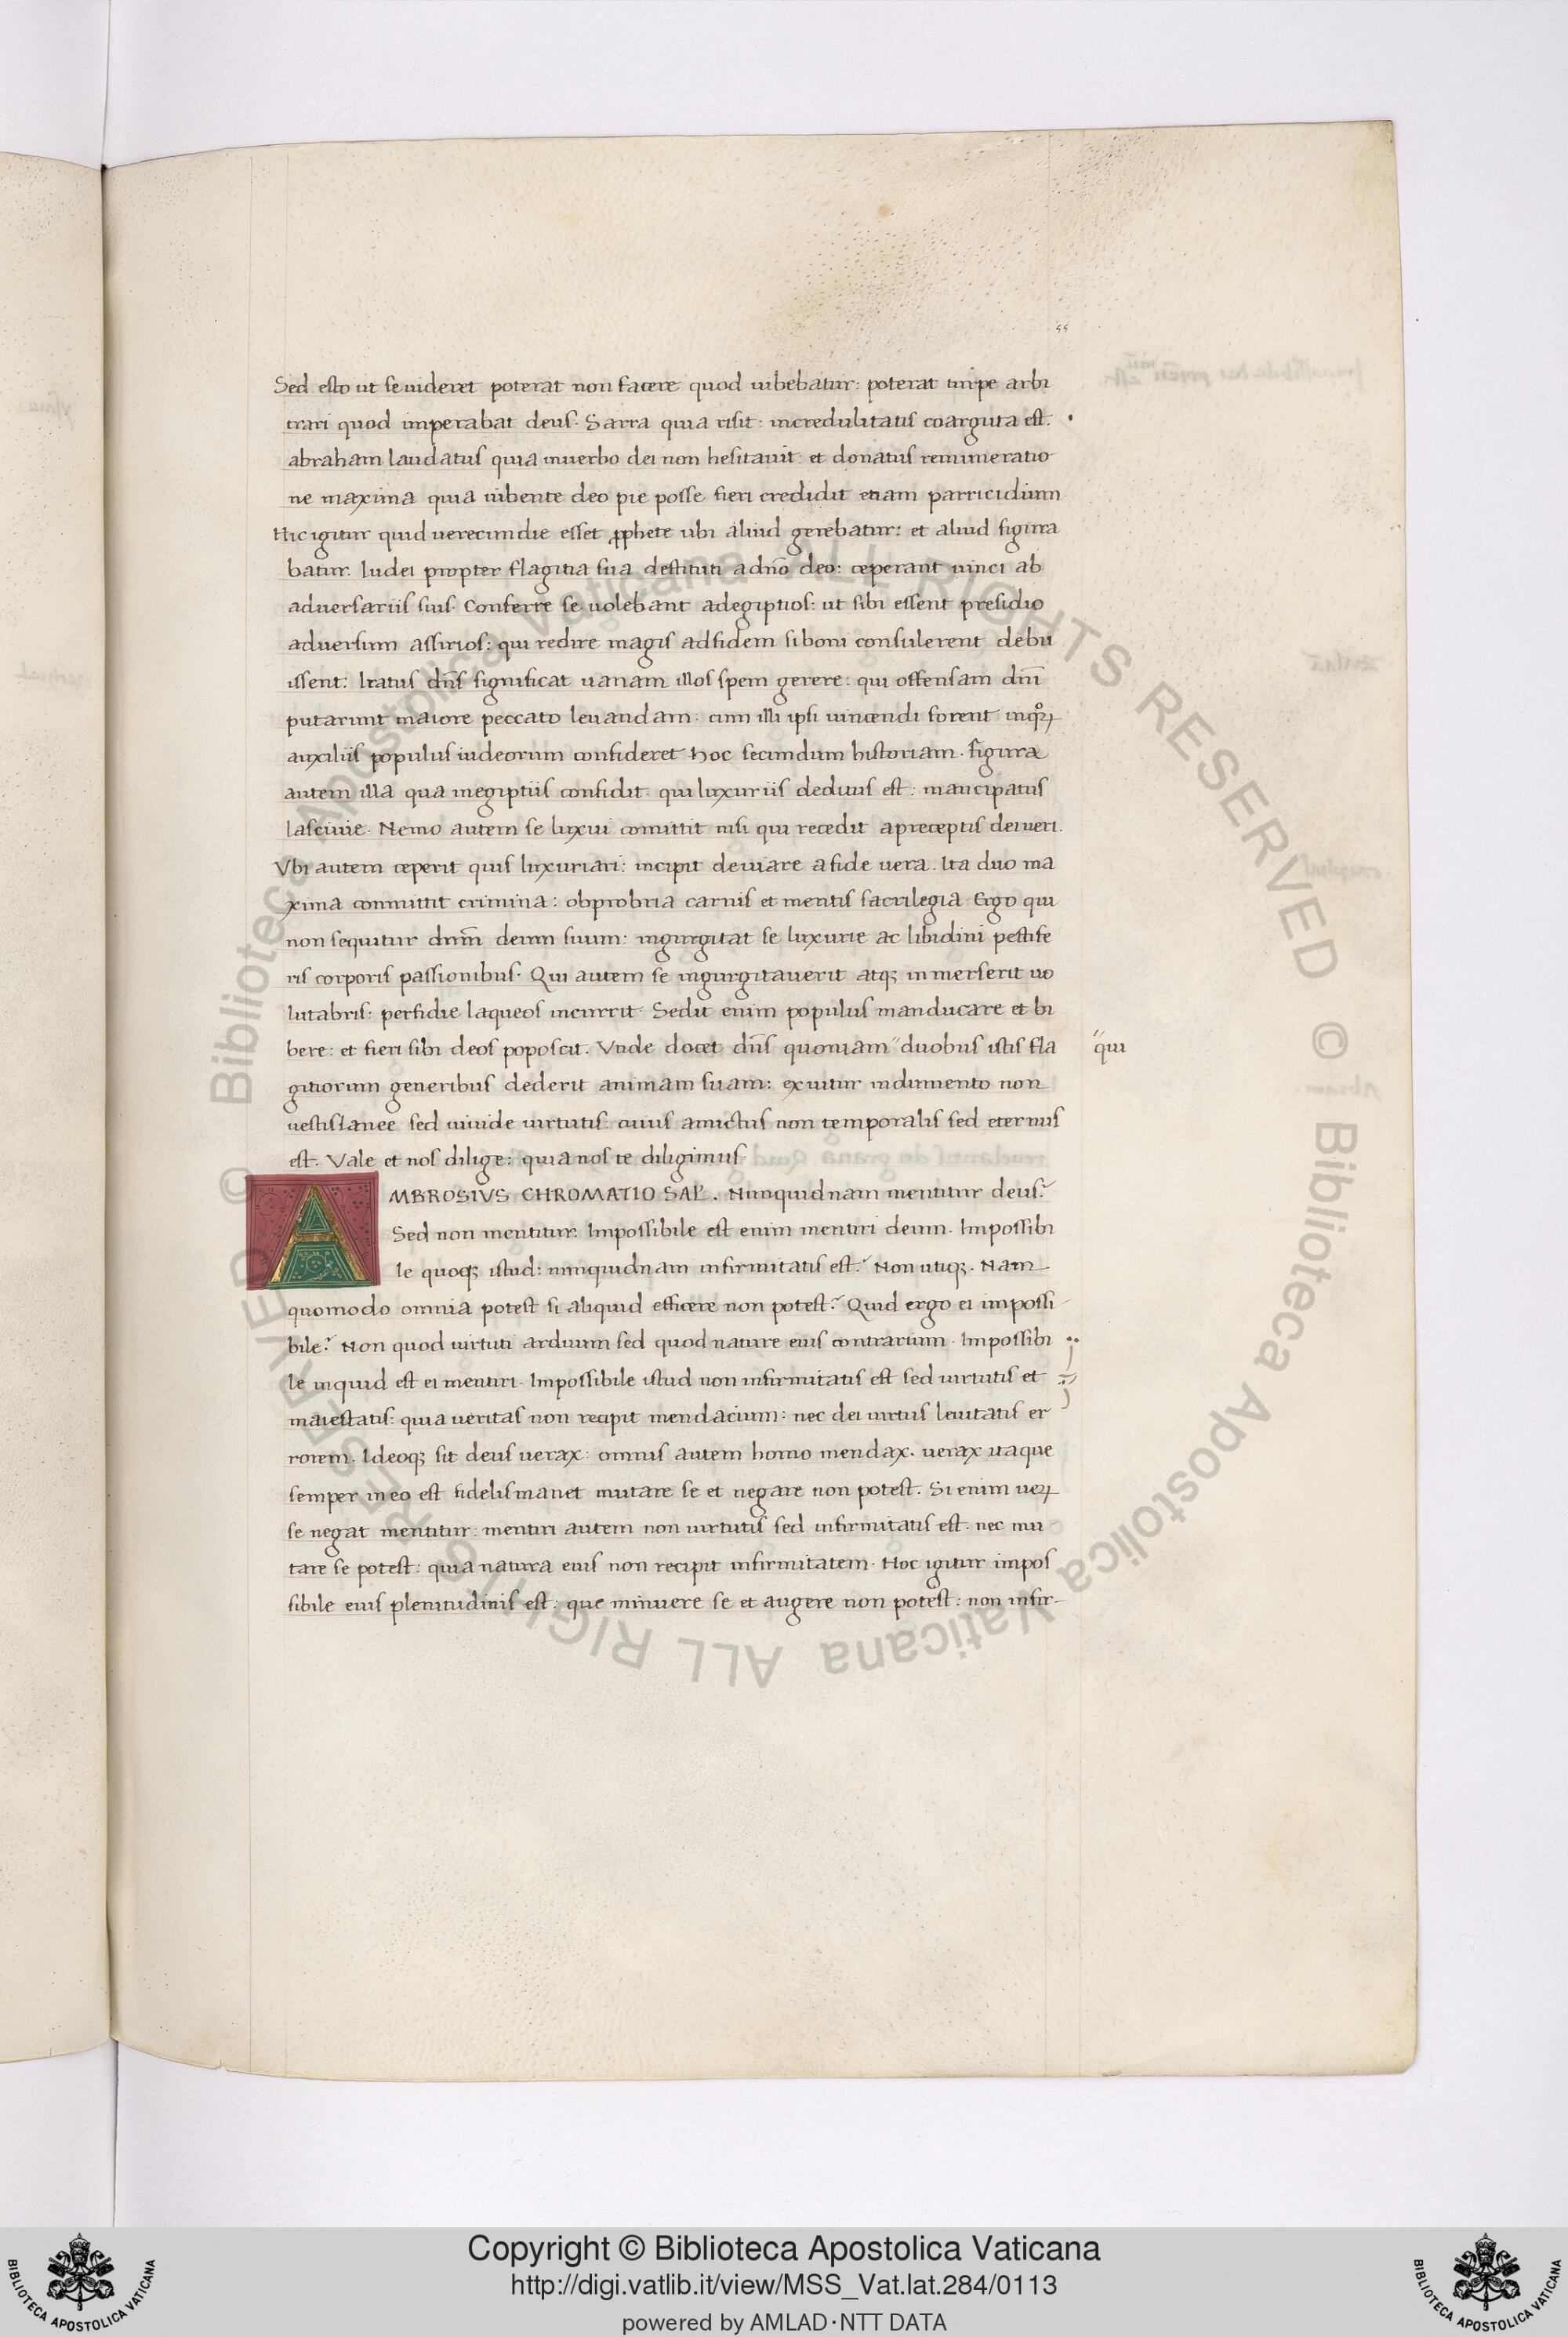 55
Sed esto ut se uideret poterat non facere quod iubebatur: poterat turpe arbi
trari quod imperabat deus. Sarra quia risit: incredulitatis coarguta est.
abraham laudatus quia inuerbo dei non hesitauit: et donatus remuneratio
ne maxima quia iubente deo pie posse fieri credidit etiam parricidium
Hic igitur quid uerecundie esset ꝓphete ubi aliud gerebatur: et aliud figura
batur. Iudei propter flagitia sua destituti adn̄o deo: ceperant uinci ab
aduersariis suis. Conferre se uolebant adegiptios: ut sibi essent presidio
aduersum assirios: qui redire magis adfidem siboni consulerent debu
issent. Iratus dn̄s significat uanam illos spem gerere: qui offensam dn̄i
putarunt maiore peccato leuandam: cum illi ipsi uincendi forent inqꝛoꝝ
auxiliis populus iudeorum confideret Hoc secundum historiam. figura
autem illa qua inegiptiis confidit. qui luxuriis deditus est: mancipatus
lasciuie. Nemo autem se luxui comittit nisi qui recedit apreceptis dei ueri.
Vbi autem ceperit quis luxuriari: incipit deuiare afide uera. Ita duo ma
xima conmittit crimina: obprobria carnis et mentis sacrilegia. Ergo qui
non sequitur dnm̄ deum suum: ingurgitat se luxurie ac libidini pestife
ris corporis passionibus. Qui autem se ingurgitauerit atqꝫ inmerserit uo
lutabris: perfidie laqueos incurrit. Sedit enim populus manducare et bi
bere: et fieri sibi deos poposcit. Vnde docet dn̄s quoniam" duobus istis fla
"qui
gitiorum generibus dederit animam suam: exuitur indumento non
uestis lanee sed uiuide uirtutis: cuius amictus non temporalis sed eternus
est. Vale et nos dilige: quia nos te diligimus
AMBROSIVS CHROMATIO SAL̄. Nunquidnam mentitur deus?
Sed non mentitur. Impossibile est enim mentiri deum. Impossibi
le quoqꝫ istud: nunquidnam infirmitatis est? Non utiqꝫ. Nam
quomodo omnia potest si aliquid efficere non potest? Quid ergo ei impossi
bile? Non quod uirtuti arduum sed quod nature eius contrarium. Impossibi
le inquid est ei mentiri. Impossibile istud non infirmitatis est sed uirtutis et
maiestatis: quia ueritas non recipit mendacium: nec dei uirtus leuitatis er
rorem. Ideoqꝫ sit deus uerax: omnis autem homo mendax. uerax itaque
semper ineo est fidelis manet mutare se et negare non potest. Si enim ueꝝ
se negat mentitur: mentiri autem non uirtutis sed infirmitatis est. nec mu
tare se potest: quia natura eius non recipit infirmitatem. Hoc igitur impos
sibile eius plenitudinis est: que minuere se et augere non potest: non infir-
© Biblioteca Apostolica Vaticana ALL RIGHTS RESERVED © Biblioteca Apostolica Vaticana ALL RIGHTS RESERVED
Copyright © Biblioteca Apostolica Vaticana
http://digi.vatlib.it/view/MSS_Vat.lat.284/0113
powered by AMLAD·NTT DATA
BIBLIOTECA APOSTOLICA VATICANA
BIBLIOTECA APOSTOLICA VATICANA